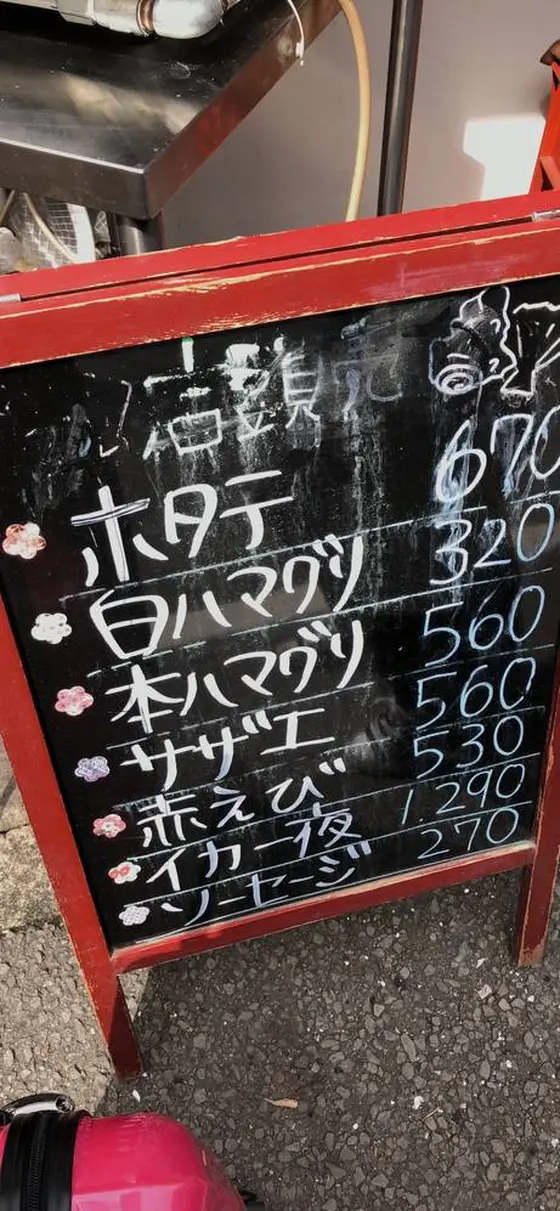 店頭売
ホタテ 670
白ハマグリ 320
本ハマグリ 560
サザエ 560
赤えび 530
イカ一夜 1290
ソーセージ 270